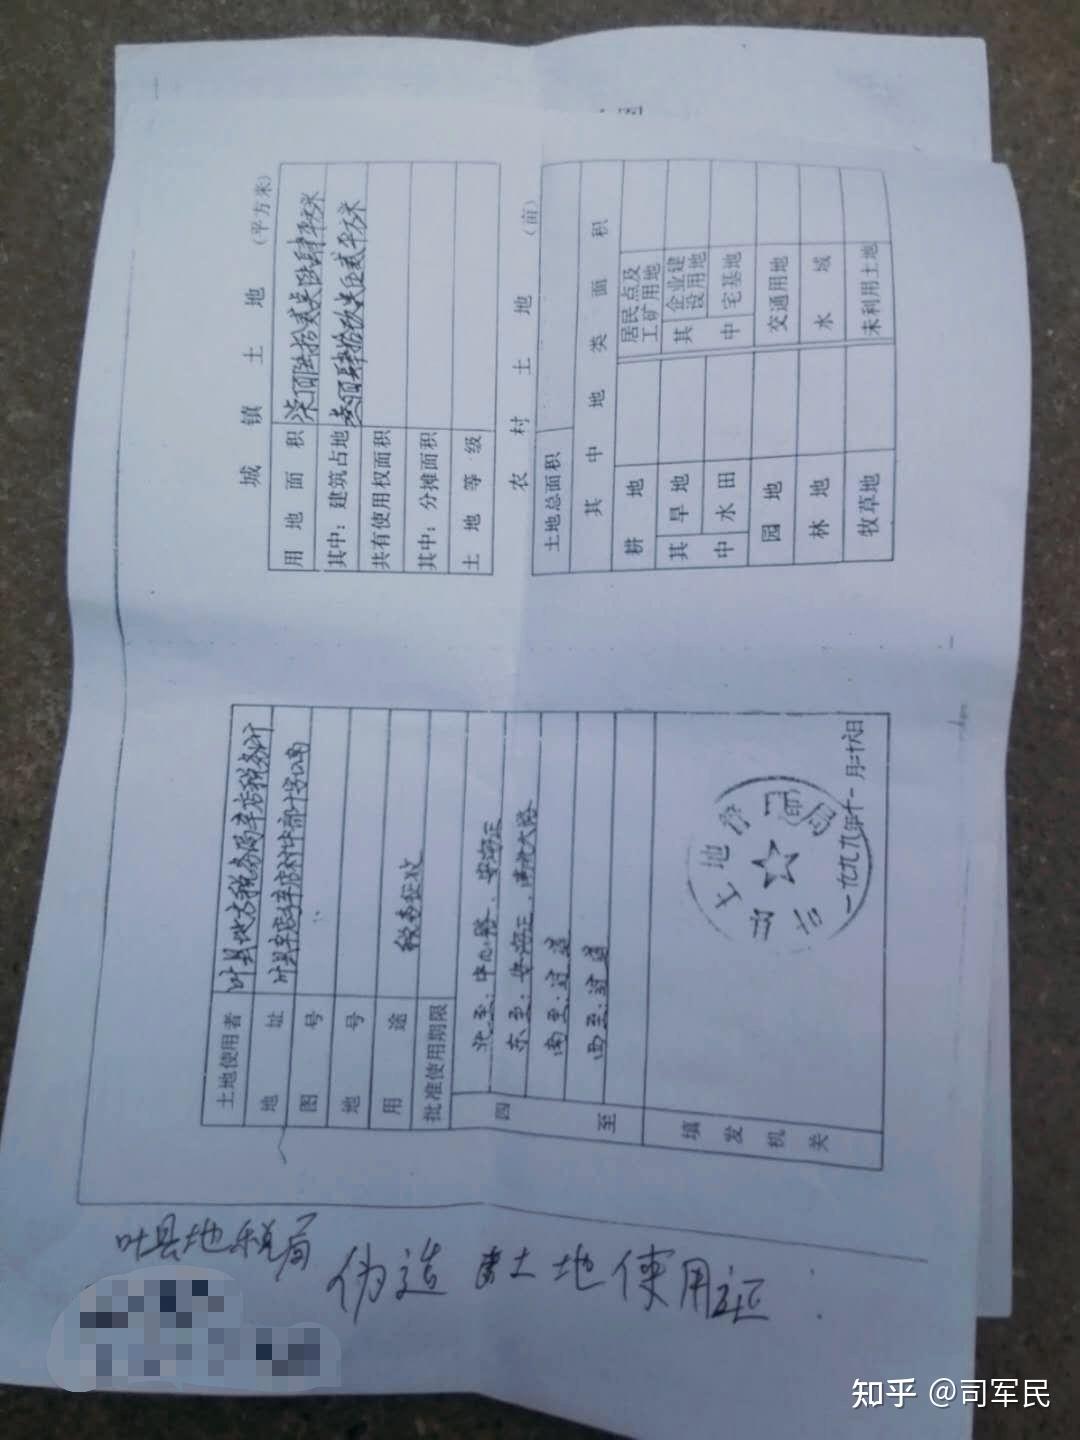 土地使用者 叶县地方税务局辛店税务所
地址 叶县辛店乡辛店村中部十字口南
图号
地号
用途 税查征收
批准使用期限
四至
北至：中心路、安海正
东至：安海正、南北大路
南至：过道
西至：过道
填发机关
土地
印
局
一九九九年十一月二十六日
城镇土地 （平方米）
用地面积 柒佰陆拾贰点陆肆平方米
其中：建筑占地 叁佰肆拾玖点伍贰平方米
共有使用权面积
其中：分摊面积
土地等级
农村土地 （亩）
土地总面积
其中地类面积
耕地 居民点及工矿用地
其中 旱地 其中 企业建设用地
水田 宅基地
园地 交通用地
林地 水域
牧草地 未利用土地
叶县地税局
伪造 土地使用证：
知乎 @司军民